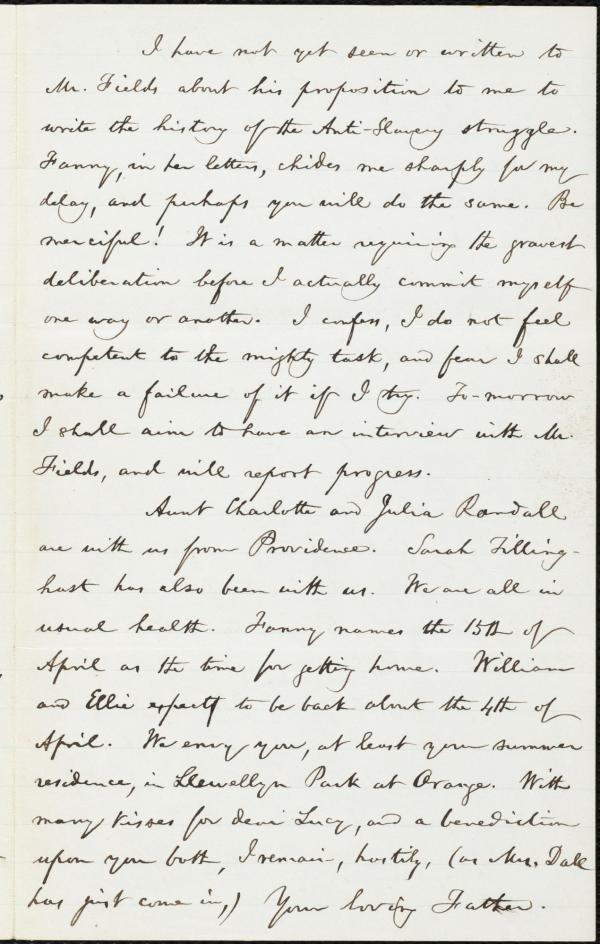 I have not yet seen or written to
Mr. Fields about his proposition to me to
write the history of the Anti-Slavery struggle.
Fanny, in her letters, chides me sharply for my
delay, and perhaps you will do the same. Be
merciful! It is a matter requiring the gravest
deliberation before I actually commit myself
one way or another. I confess, I do not feel
competent to the mighty task, and fear I shall
make a failure of it if I try. To-morrow
I shall aim to have an interview with Mr.
Fields, and will report progress.
Aunt Charlotte and Julia Randall
are with us from Providence. Sarah Tilling-
hast has also been with us. We are all in
usual health. Fanny names the 15th of
April as the time for getting home. William
and Ellie expect to be back about the 4th of
April. We envy you, at least your summer
residence, in Llewellyn Park at Orange. With
many kisses for dear Lucy, and a benediction
upon you both, I remain, hastily, (as Mrs. Dall
has just come in,) Your loving Father.